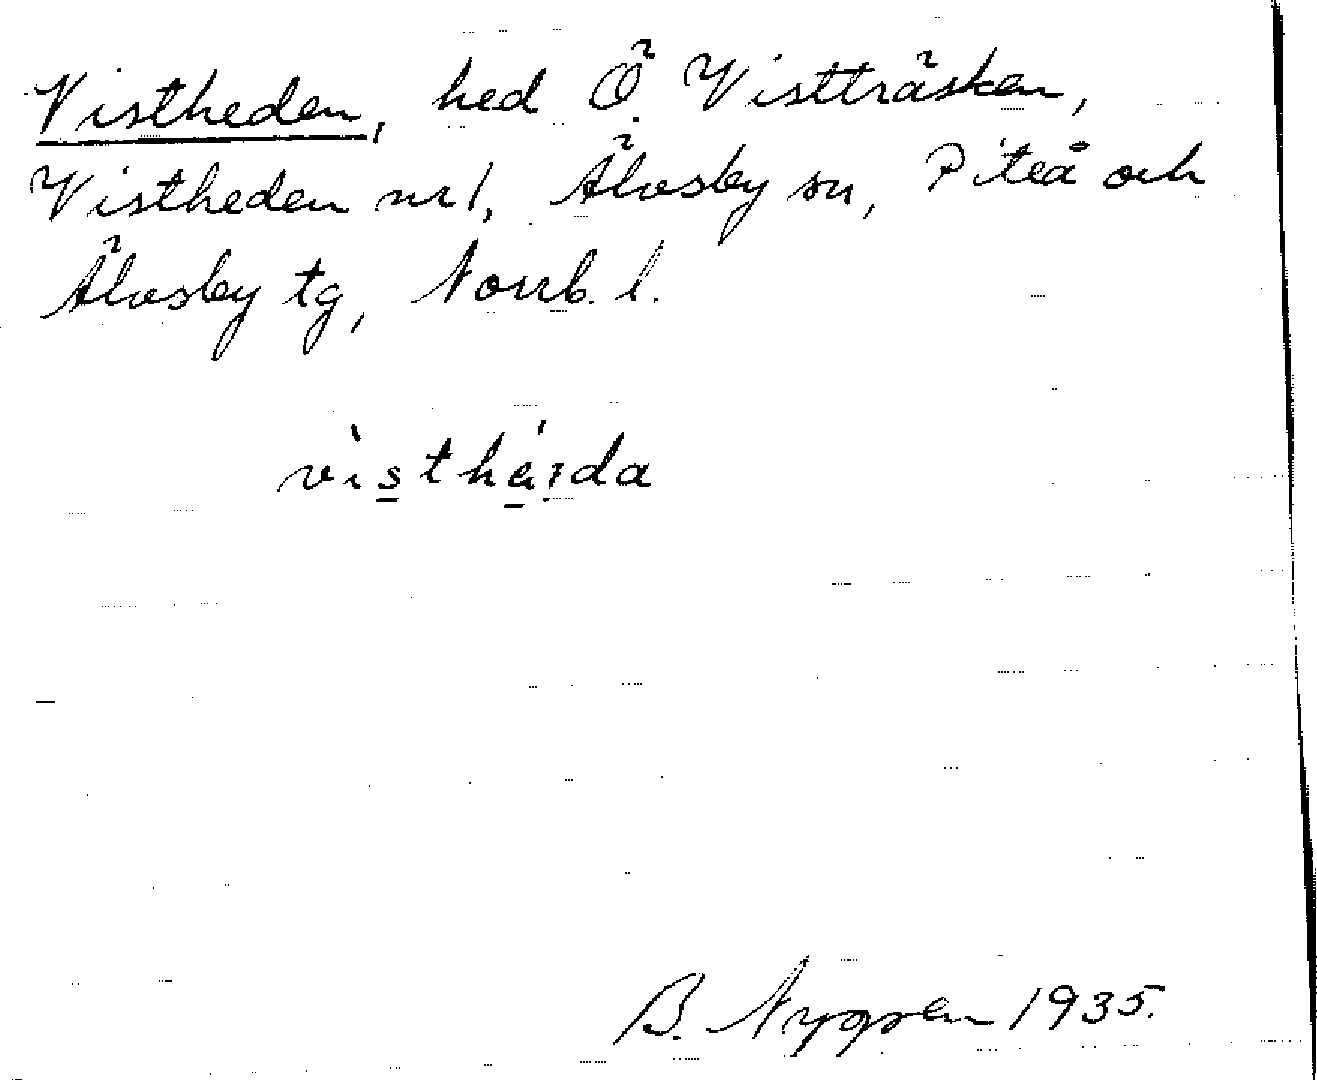 Vistheden, hed Ö. Vistträsken,
Vistheden nr 1, Älvsby sn, Piteå och
Älvsby tg, Norrb. l.
vìsthá̱ɪda
B. Nygren 1935.